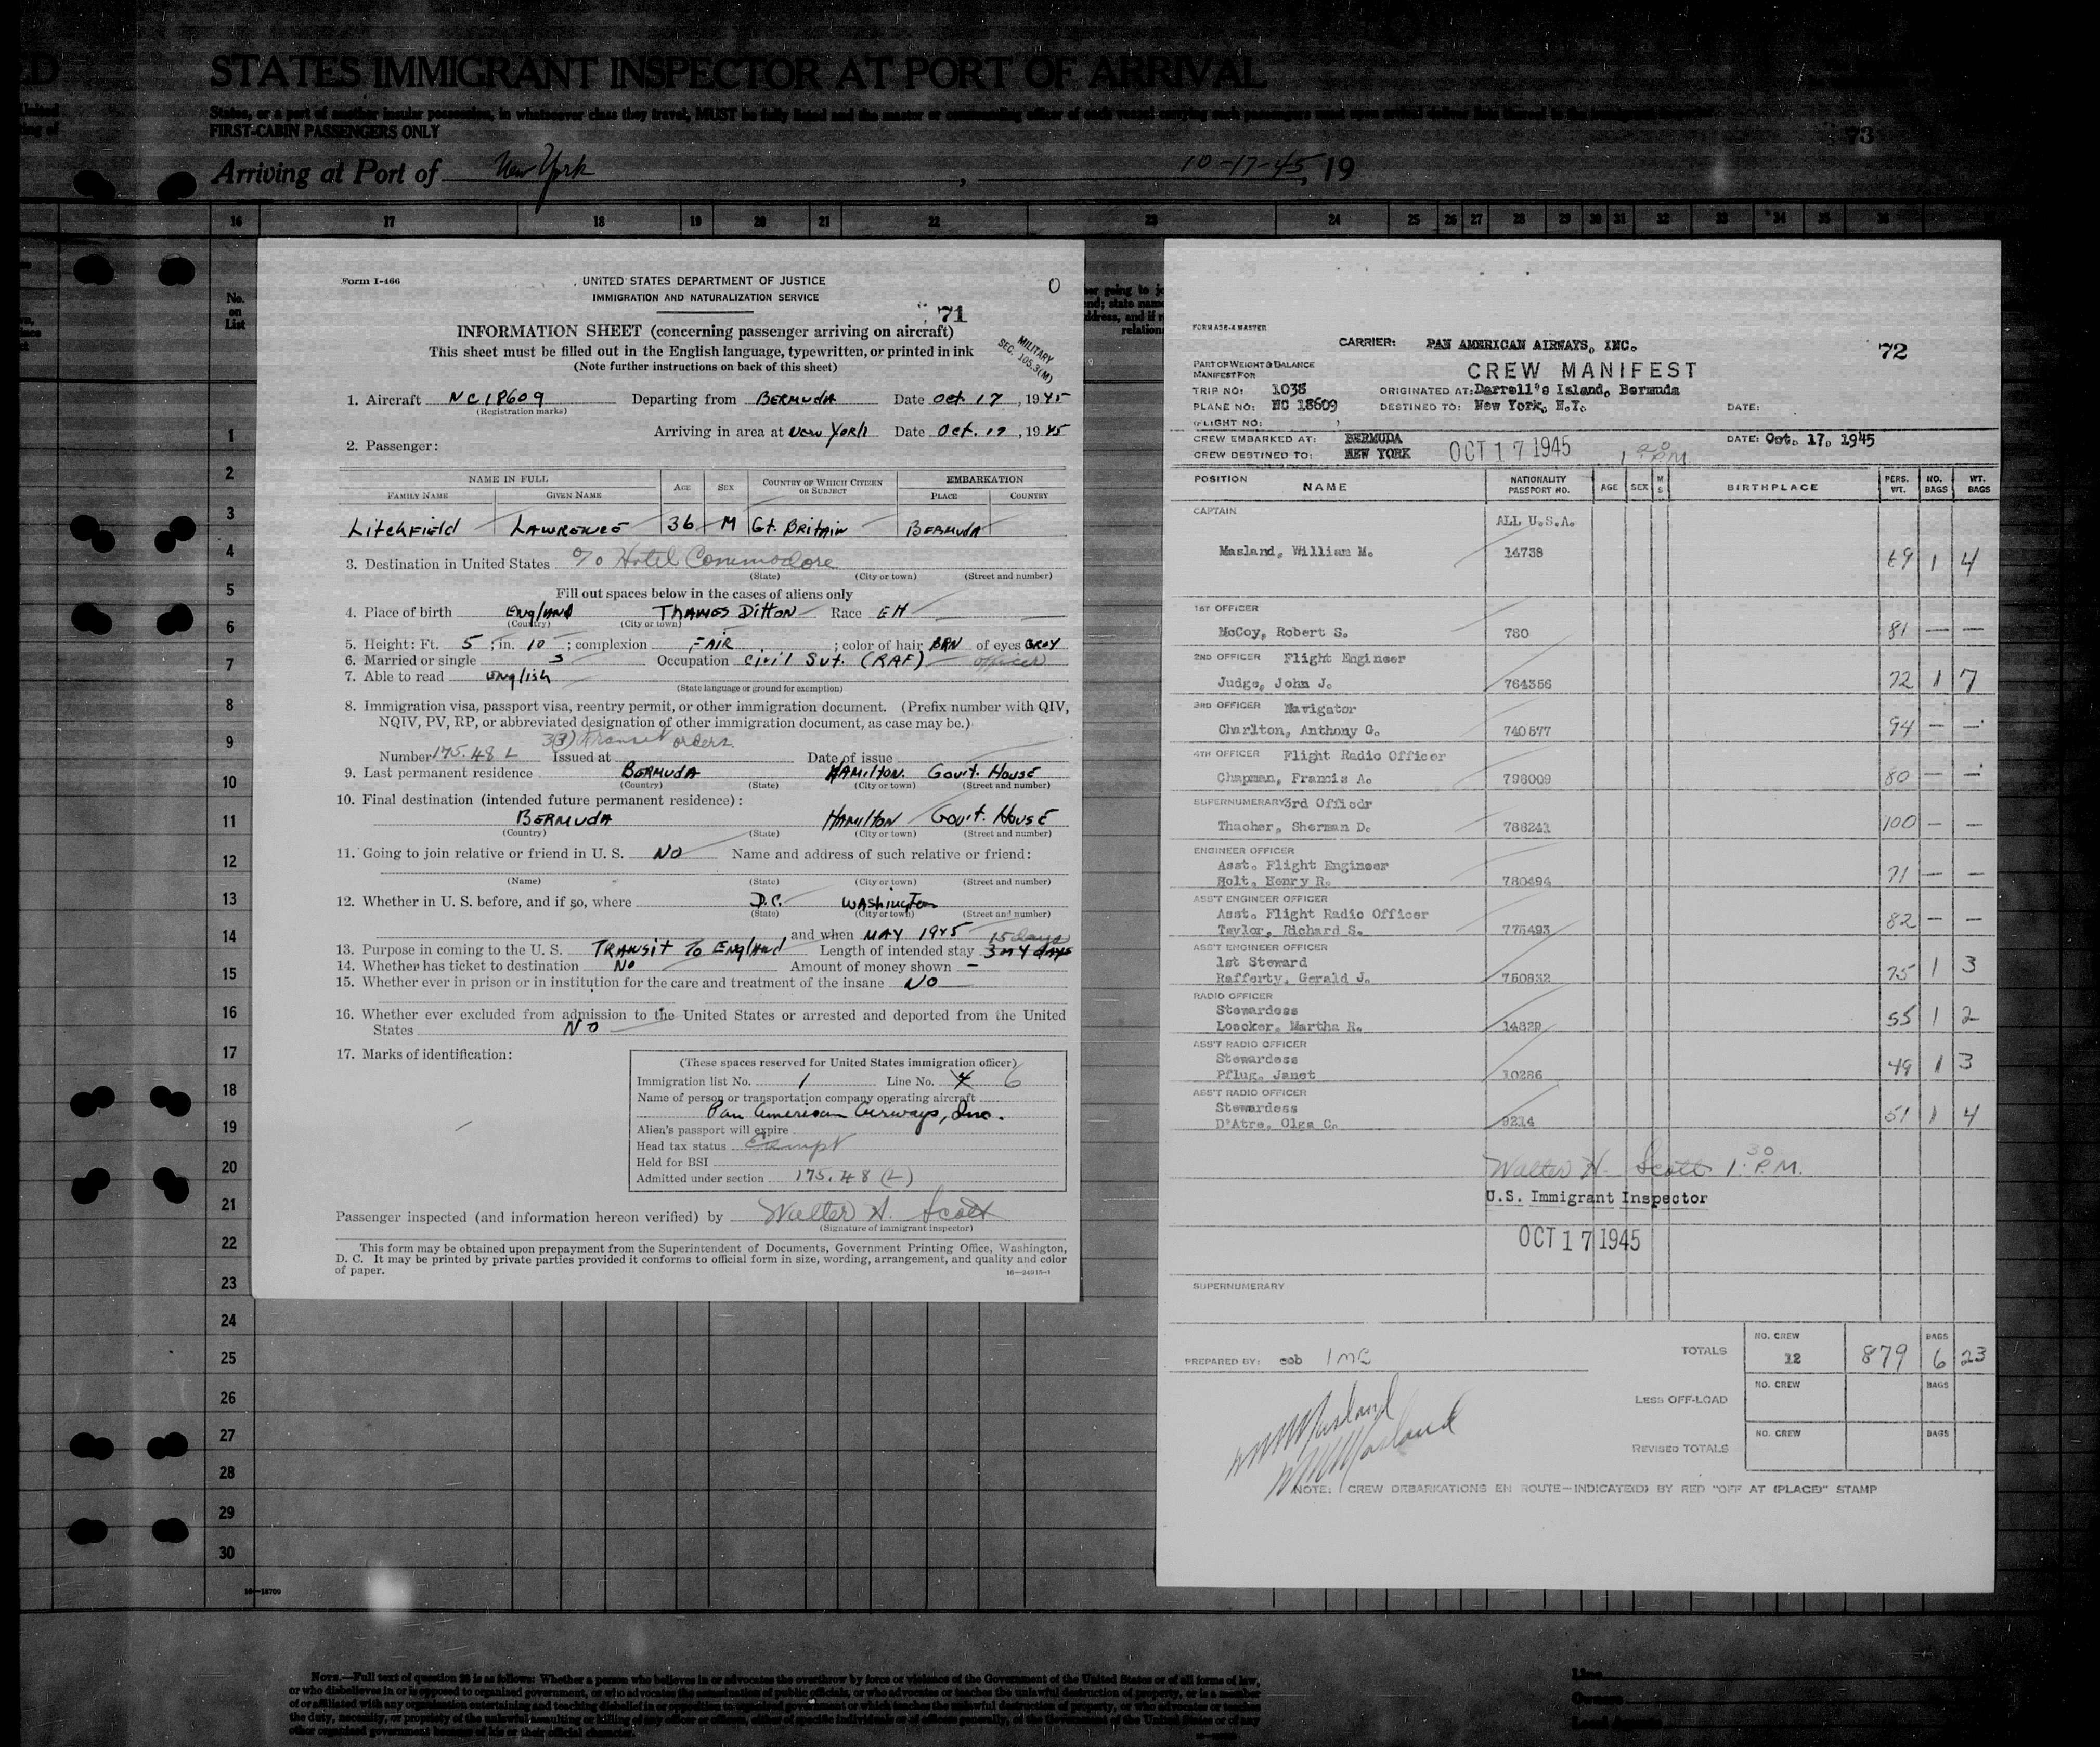 ED
STATES IMMIGRANT INSPECTOR AT PORT OF ARRIVAL
States, or a part of another insular possession, in whatsoever class they travel, MUST be fully listed and the master or commanding officer of each vessel carrying such passengers must upon arrival deliver lists thereof to the immigrant inspector
FIRST-CABIN PASSENGERS ONLY
73
Arriving at Port of New York, 10-17-45, 19
16 17 18 19 20 21 22 23 24 25 26 27 28 29 30 31 32 33 34 35 36
No. on List
1
2
3
4
5
6
7
8
9
10
11
12
13
14
15
16
17
18
19
20
21
22
23
24
25
26
27
28
29
30
16—18709
Form I-466
UNITED STATES DEPARTMENT OF JUSTICE
0
IMMIGRATION AND NATURALIZATION SERVICE
71
INFORMATION SHEET (concerning passenger arriving on aircraft)
MILITARY
SEC. 105.3(M)
This sheet must be filled out in the English language, typewritten, or printed in ink
(Note further instructions on back of this sheet)
1. Aircraft NC18609 Departing from BERMUDA Date Oct. 17, 1945
(Registration marks)
Arriving in area at New York Date Oct. 17, 1945
2. Passenger:
NAME IN FULL AGE SEX COUNTRY OF WHICH CITIZEN OR SUBJECT EMBARKATION
FAMILY NAME GIVEN NAME PLACE COUNTRY
Litchfield LAWRENCE 36 M Gt. BRITAIN BERMUDA
3. Destination in United States % Hotel Commodore
(State) (City or town) (Street and number)
Fill out spaces below in the cases of aliens only
4. Place of birth England THAMES DITTON Race EH
(Country) (City or town)
5. Height: Ft. 5; in. 10; complexion FAIR; color of hair BRN of eyes GREY
6. Married or single S Occupation Civil Svt. (RAF) officer
7. Able to read English
(State language or ground for exemption)
8. Immigration visa, passport visa, reentry permit, or other immigration document. (Prefix number with QIV,
NQIV, PV, RP, or abbreviated designation of other immigration document, as case may be.)
3(3) Transit orders.
Number 175.48 L Issued at Date of issue
9. Last permanent residence BERMUDA HAMILTON. Govt. House
(Country) (State) (City or town) (Street and number)
10. Final destination (intended future permanent residence):
BERMUDA HAMILTON Govt. HOUSE
(Country) (State) (City or town) (Street and number)
11. Going to join relative or friend in U. S. NO Name and address of such relative or friend:
(Name) (State) (City or town) (Street and number)
12. Whether in U. S. before, and if so, where D.C. WASHINGTON
(State) (City or town) (Street and number)
and when MAY 1945 15 days
13. Purpose in coming to the U. S. TRANSIT TO ENGLAND Length of intended stay 3 or 4 days
14. Whether has ticket to destination No Amount of money shown –
15. Whether ever in prison or in institution for the care and treatment of the insane NO
16. Whether ever excluded from admission to the United States or arrested and deported from the United
States NO
17. Marks of identification:
(These spaces reserved for United States immigration officer)
Immigration list No. 1 Line No. 4 6
Name of person or transportation company operating aircraft
Pan American Airways, Inc.
Alien's passport will expire
Head tax status Exempt
Held for BSI
Admitted under section 175.48 (L)
Passenger inspected (and information hereon verified) by Walter H. Scott
(Signature of immigrant inspector)
This form may be obtained upon prepayment from the Superintendent of Documents, Government Printing Office, Washington,
D. C. It may be printed by private parties provided it conforms to official form in size, wording, arrangement, and quality and color
of paper.
16—24915-1
FORM A36-4 MASTER
CARRIER: PAN AMERICAN AIRWAYS, INC.
72
PART OF WEIGHT & BALANCE
MANIFEST FOR
CREW MANIFEST
TRIP NO: 1038 ORIGINATED AT: Darrell's Island, Bermuda
PLANE NO: NC 18609 DESTINED TO: New York, N.Y. DATE:
(FLIGHT NO: )
CREW EMBARKED AT: BERMUDA OCT 17 1945 1 20 P.M. DATE: Oct. 17, 1945
CREW DESTINED TO: NEW YORK
POSITION NAME NATIONALITY PASSPORT NO. AGE SEX M S BIRTHPLACE PERS. WT. NO. BAGS WT. BAGS
CAPTAIN
ALL U.S.A.
Masland, William M. 14738 69 1 4
1ST OFFICER
McCoy, Robert S. 780 81 — —
2ND OFFICER Flight Engineer
Judge, John J. 764356 72 1 7
3RD OFFICER Navigator
Charlton, Anthony G. 740577 94 — —
4TH OFFICER Flight Radio Officer
Chapman, Francis A. 798009 80 — —
SUPERNUMERARY 3rd Officdr
Thacher, Sherman D. 788241 100 — —
ENGINEER OFFICER
Asst. Flight Engineer
Holt, Henry R. 780494 71 — —
ASS'T ENGINEER OFFICER
Asst. Flight Radio Officer
Taylor, Richard S. 775493 82 — —
ASS'T ENGINEER OFFICER
1st Steward
Rafferty, Gerald J. 750832 75 1 3
RADIO OFFICER
Stewardess
Loacker, Martha R. 14829 55 1 2
ASS'T RADIO OFFICER
Stewardess
Pflug, Janet 10286 49 1 3
ASS'T RADIO OFFICER
Stewardess
D'Atre, Olga C. 9214 51 1 4
Walter H. Scott 1:30 P.M.
U.S. Immigrant Inspector
OCT 17 1945
SUPERNUMERARY
PREPARED BY: eob
TOTALS NO. CREW 12 879 BAGS 6 23
LESS OFF-LOAD NO. CREW BAGS
REVISED TOTALS NO. CREW BAGS
WM Masland
WM Masland
NOTE: (CREW DEBARKATIONS EN ROUTE—INDICATE(D) BY RED "OFF AT (PLACE)" STAMP
NOTE.—Full text of question 28 is as follows: Whether a person who believes in or advocates the overthrow by force or violence of the Government of the United States or of all forms of law,
or who disbelieves in or is opposed to organized government, or who advocates the assassination of public officials, or who advocates or teaches the unlawful destruction of property, or is a member
of or affiliated with any organization entertaining and teaching disbelief in or opposition to organized government or which teaches the unlawful destruction of property, or who advocates or teaches
the duty, necessity, or propriety of the unlawful assaulting or killing of any officer or officers, either of specific individuals or of officers generally, of the Government of the United States or of any
other organized government because of his or their official character.
Line
Owners
Local Agents